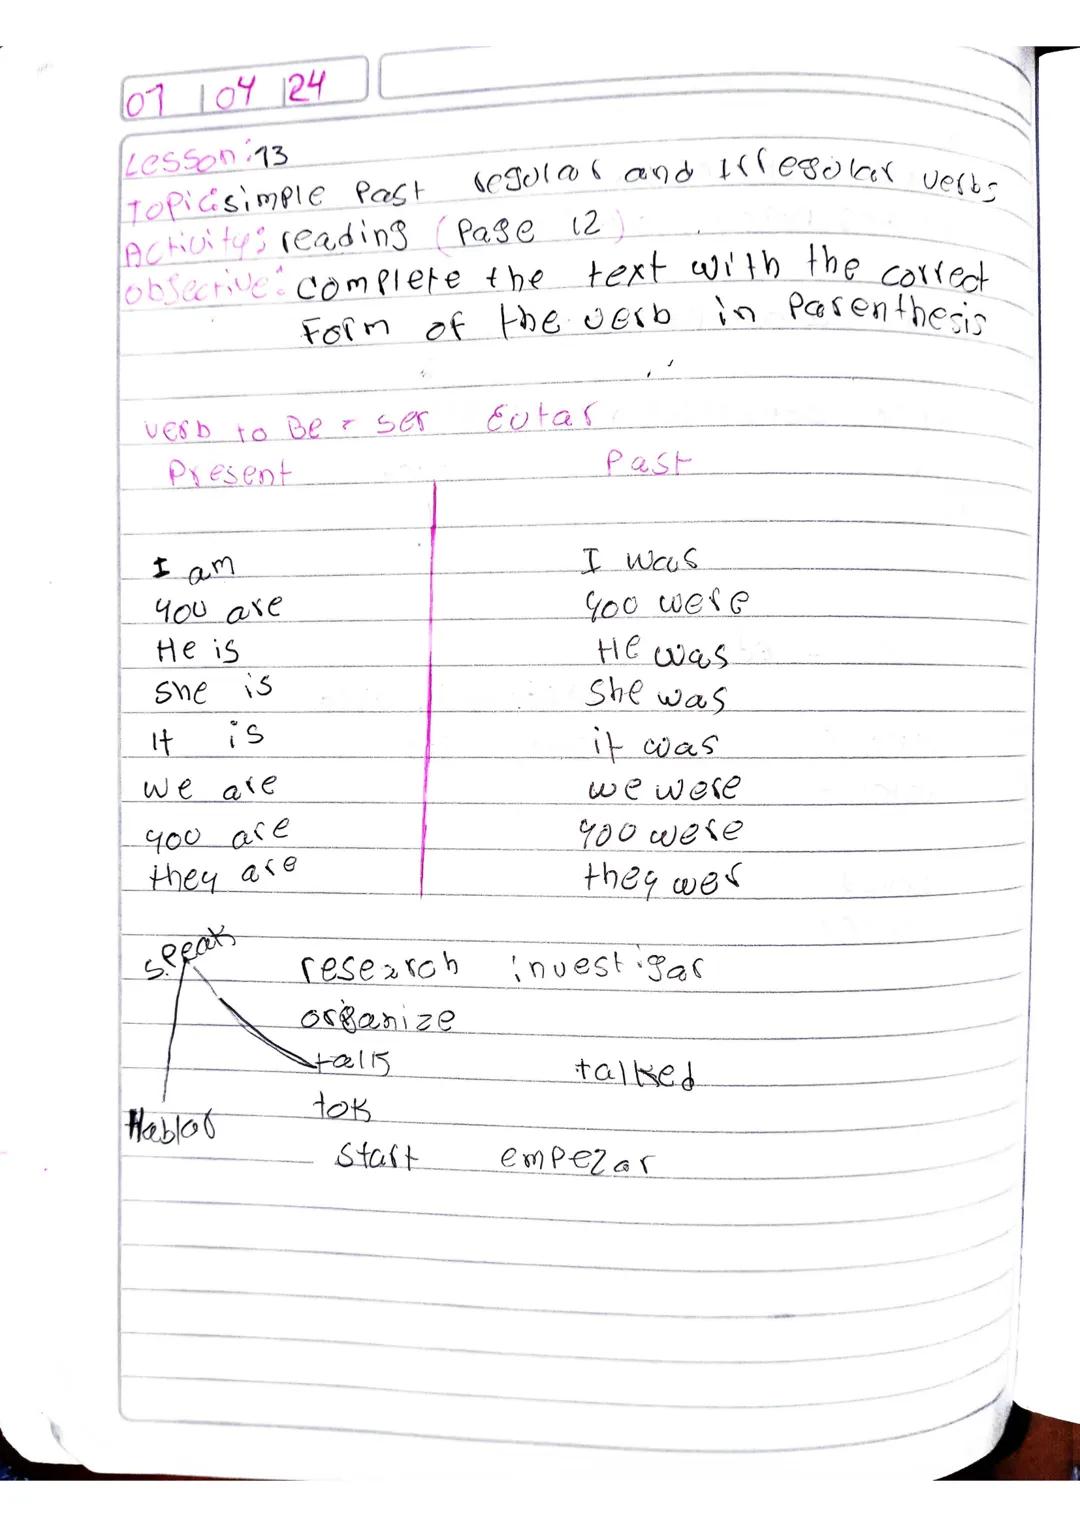 07 | 04 | 24
Lesson: 13
Topic: simple Past regular and Irregular verbs
Activity: reading (Page 12)
obsective: complete the text with the correct
Form of the verb in Parenthesis
verb to Be = ser Estar
Present Past
I am I was
you are you were
He is He was
She is She was
It is it was
we are we were
you are you were
they are they wer
speak
research investigar
organize
talk talked
tok
Hablar
start empezar